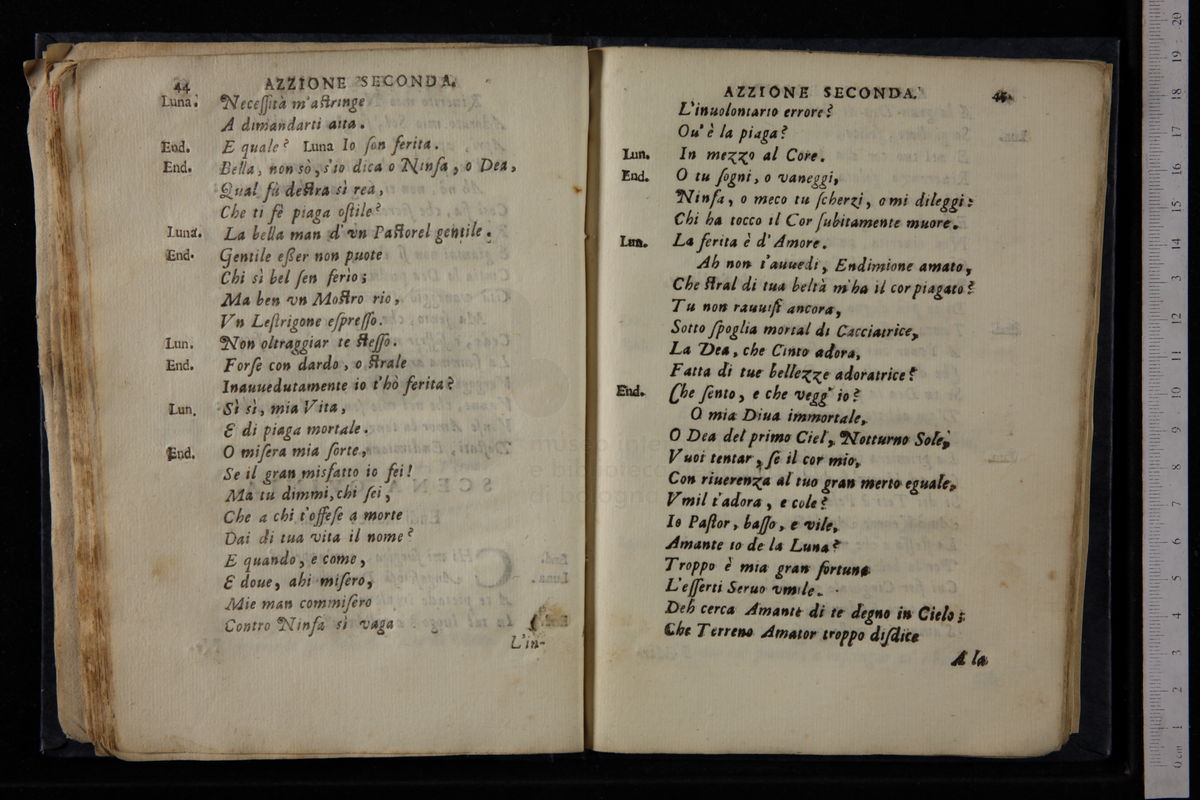 44 AZZIONE SECONDA.
Luna. Neceſſità m'aſtringe
A dimandarti aita.
End. E quale? Luna Io ſon ferita.
End. Bella, non sò, s'io dica o Ninfa, o Dea,
Qual fù deſtra sì rea,
Che ti fè piaga oſtile?
Luna. La bella man d'vn Paſtorel gentile.
End. Gentile eßer non puote
Chi sì bel ſen ferìo;
Ma ben vn Moſtro rio,
Vn Leſtrigone eſpreſſo.
Lun. Non oltraggiar te ſteſſo.
End. Forſe con dardo, o ſtrale
Inauuedutamente io t'hò ferita?
Lun. Sì sì, mia Vita,
E di piaga mortale.
End. O miſera mia ſorte,
Se il gran misfatto io fei!
Ma tu dimmi, chi ſei,
Che a chi t'offeſe a morte
Dai di tua vita il nome?
E quando, e come,
E doue, ahi miſero,
Mie man commiſero
Contro Ninfa sì vaga
L'in-
AZZIONE SECONDA. 45
L'inuolontario errore?
Ou' è la piaga?
Lun. In mezzo al Core.
End. O tu ſogni, o vaneggi,
Ninfa, o meco tu ſcherzi, o mi dileggi:
Chi ha tocco il Cor ſubitamente muore.
Lun. La ferita è d'Amore.
Ah non t'auuedi, Endimione amato,
Che ſtral di tua beltà m'ha il cor piagato?
Tu non rauuiſi ancora,
Sotto ſpoglia mortal di Cacciatrice,
La Dea, che Cinto adora,
Fatta di tue bellezze adoratrice?
End. Che ſento, e che vegg' io?
O mia Diua immortale,
O Dea del primo Ciel, Notturno Sole,
Vuoi tentar, ſe il cor mio,
Con riuerenza al tuo gran merto eguale,
Vmil t'adora, e cole?
Io Paſtor, baſſo, e vile,
Amante io de la Luna?
Troppo è mia gran fortuna
L'eſſerti Seruo vmile.
Deh cerca Amante di te degno in Cielo;
Che Terreno Amator troppo diſdice
A la